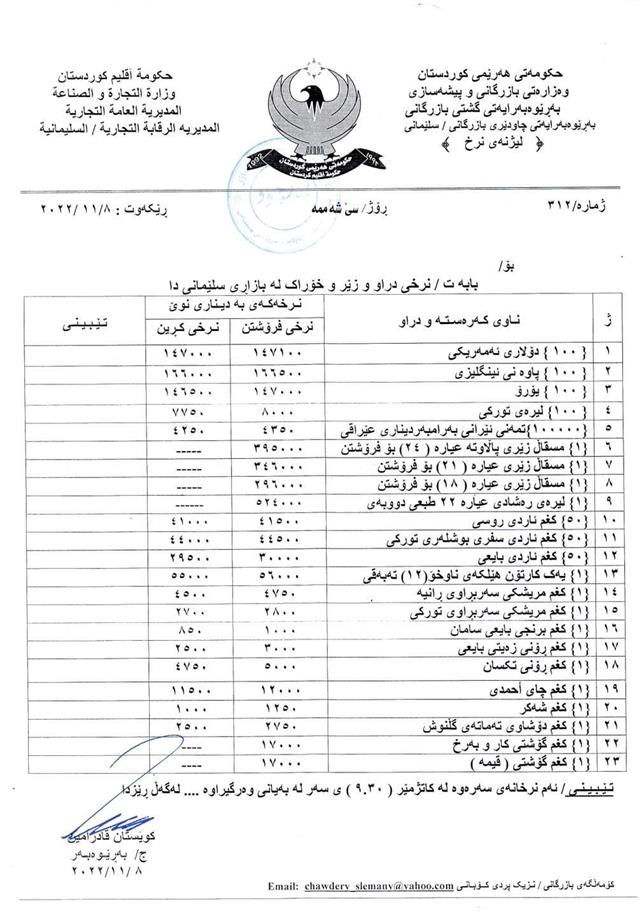 حكومەتی هەرێمی كوردستان
وەزارەتی بازرگانی و پیشەسازی
بەڕێوەبەرایەتی گشتی بازرگانی
بەڕێوەبەرایەتی چاودێری بازرگانی / سلێمانی
﴿ لیژنەی نرخ ﴾
حكومة أقليم كوردستان
وزارة التجارة و الصناعة
المديرية العامة التجارية
المديريه الرقابة التجارية / السليمانية
1992 حكومەتی هەرێمی كوردستان ١٩٩٢
حكومة اقليم كردستان
ژمارە/٣١٢
ڕۆژ/ سێ شەممە
ڕێكەوت : ٢٠٢٢/١١/٨
بۆ/
بابە ت / نرخی دراو و زێر و خۆراك لە بازاڕی سلێمانی دا
ژ ناوی كەرەستە و دراو نرخەكەی بە دیناری نوێ تێبینی
نرخی فرۆشتن نرخی كڕین
١ {١٠٠} دۆلاری ئەمەریكی ١٤٧١٠٠ ١٤٧٠٠٠
٢ {١٠٠} پاوە نی ئینگلیزی ١٦٦٥٠٠ ١٦٦٠٠٠
٣ {١٠٠} یۆرۆ ١٤٧٠٠٠ ١٤٦٥٠٠
٤ {١٠٠} لیرەی توركی ٨٠٠٠ ٧٧٥٠
٥ {١٠٠٠٠٠}تمەنی ئێرانی بەرامبەردیناری عێراقی ٤٣٥٠ ٤٢٥٠
٦ {١} مسقاڵ زێڕی پاڵاوتە عیارە ( ٢٤) بۆ فرۆشتن ٣٩٥٠٠٠ -----
٧ {١} مسقاڵ زێڕی عیارە ( ٢١) بۆ فرۆشتن ٣٤٦٠٠٠ -----
٨ {١} مسقاڵ زێڕی عیارە ( ١٨) بۆ فرۆشتن ٢٩٦٠٠٠ -----
٩ {١} لیرەی ڕەشادی عیارە ٢٢ طبعی دووبەی ٥٢٤٠٠٠ ------
١٠ {٥٠} كغم ئاردی روسی ٤١٥٠٠ ٤١٠٠٠
١١ {٥٠} كغم ئاردی سفری بوشلەری توركی ٤٤٥٠٠ ٤٤٠٠٠
١٢ {٥٠} كغم ئاردی بایعی ٣٠٠٠٠ ٢٩٥٠٠
١٣ {١} یەك كارتۆن هێلكەی ناوخۆ(١٢) تەبەقی ٥٦٠٠٠ ٥٥٠٠٠
١٤ {١} كغم مریشكی سەربراوی ڕانیە ٤٧٥٠ ٤٥٠٠
١٥ {١} كغم مریشكی سەربڕاوی توركی ٢٨٠٠ ٢٧٠٠
١٦ {١} كغم برنجی بایعی سامان ١٠٠٠ ٨٥٠
١٧ {١} كغم ڕۆنی زەیتی بایعی ٣٠٠٠ ٢٥٠٠
١٨ {١} كغم ڕۆنی تكسان ٥٠٠٠ ٤٧٥٠
١٩ {١} كغم چای أحمدی ١٢٠٠٠ ١١٥٠٠
٢٠ {١} كغم شەكر ١٢٥٠ ١٠٠٠
٢١ {١} كغم دۆشاوی تەماتەی گڵنوش ٢٧٥٠ ٢٥٠٠
٢٢ {١} كغم گۆشتی كار و بەرخ ١٧٠٠٠ ----
٢٣ {١} كغم گۆشتی ( قیمە ) ١٧٠٠٠ ----
تێبینی/ ئەم نرخانەی سەرەوە لە كاتژمێر ( ٩.٣٠ ) ی سەر لە بەیانی وەرگیراوە .... لەگەڵ ڕێزدا
كوێستان قادرامین
ج/ بەڕێوەبەر
٢٠٢٢/١١/٨
كۆمەڵگەی بازرگانی / نزیك پردی كۆبانی Email: chawdery_slemany@yahoo.com